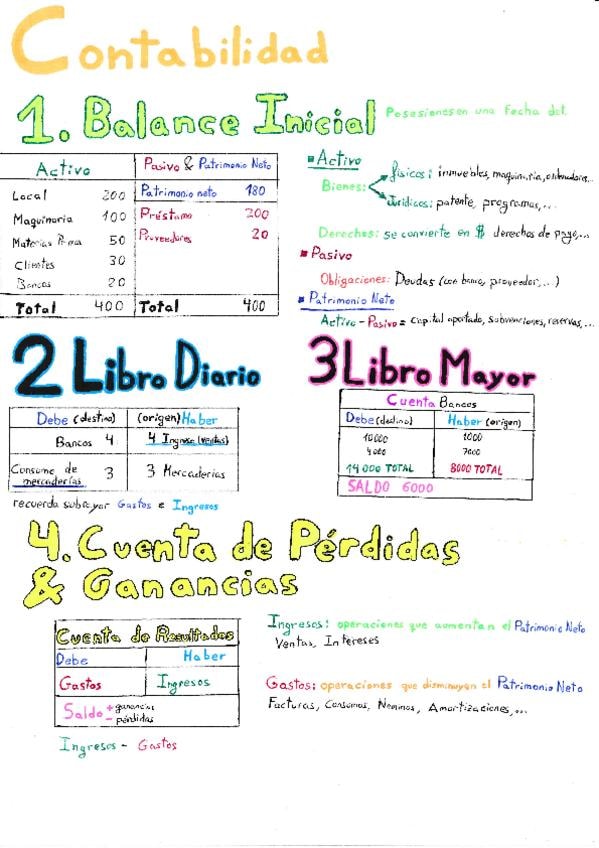 Contabilidad
1. Balance Inicial
Posesiones en una fecha det.
Activo
Local 200
Maquinaria 100
Materias Prima 50
Clientes 30
Bancos 20
Total 400
Pasivo & Patrimonio Neto
Patrimonio neto 180
Préstamo 200
Proveedores 20
Total 400
Activo
Bienes:
físicos: inmuebles, maquinaria, ordenadores...
Jurídicos: patente, programas,...
Derechos: se convierte en $ derechos de pago,...
Pasivo
Obligaciones: Deudas (con banco, proveedor,...)
Patrimonio Neto
Activo - Pasivo = capital aportado, subvenciones, reservas,...
2 Libro Diario
Debe (destino) (origen) Haber
Bancos 4 4 Ingreso (ventas)
Consumo de
mercaderías 3 3 Mercaderías
recuerda subrayar Gastos e Ingresos
3 Libro Mayor
Cuenta Bancos
Debe (destino) Haber (origen)
10000 1000
4000 7000
14000 TOTAL 8000 TOTAL
SALDO 6000
4. Cuenta de Pérdidas
& Ganancias
Cuenta de Resultados
Debe Haber
Gastos Ingresos
Saldo + ganancias
- pérdidas
Ingresos - Gastos
Ingresos: operaciones que aumentan el Patrimonio Neto
Ventas, Intereses
Gastos: operaciones que disminuyen el Patrimonio Neto
Facturas, Consumos, Nóminas, Amortizaciones,...